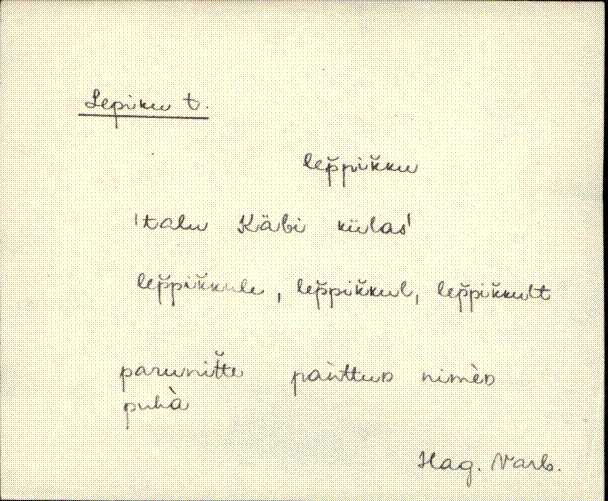 Lepiku t.
lep̆pik̆ku
'talu Käbi külas'
lep̆pik̆kule, lep̆pik̆kul, lep̆pik̆kult
parunit̆te pàǹttuD nimèD
puhà
Hag. Varb.